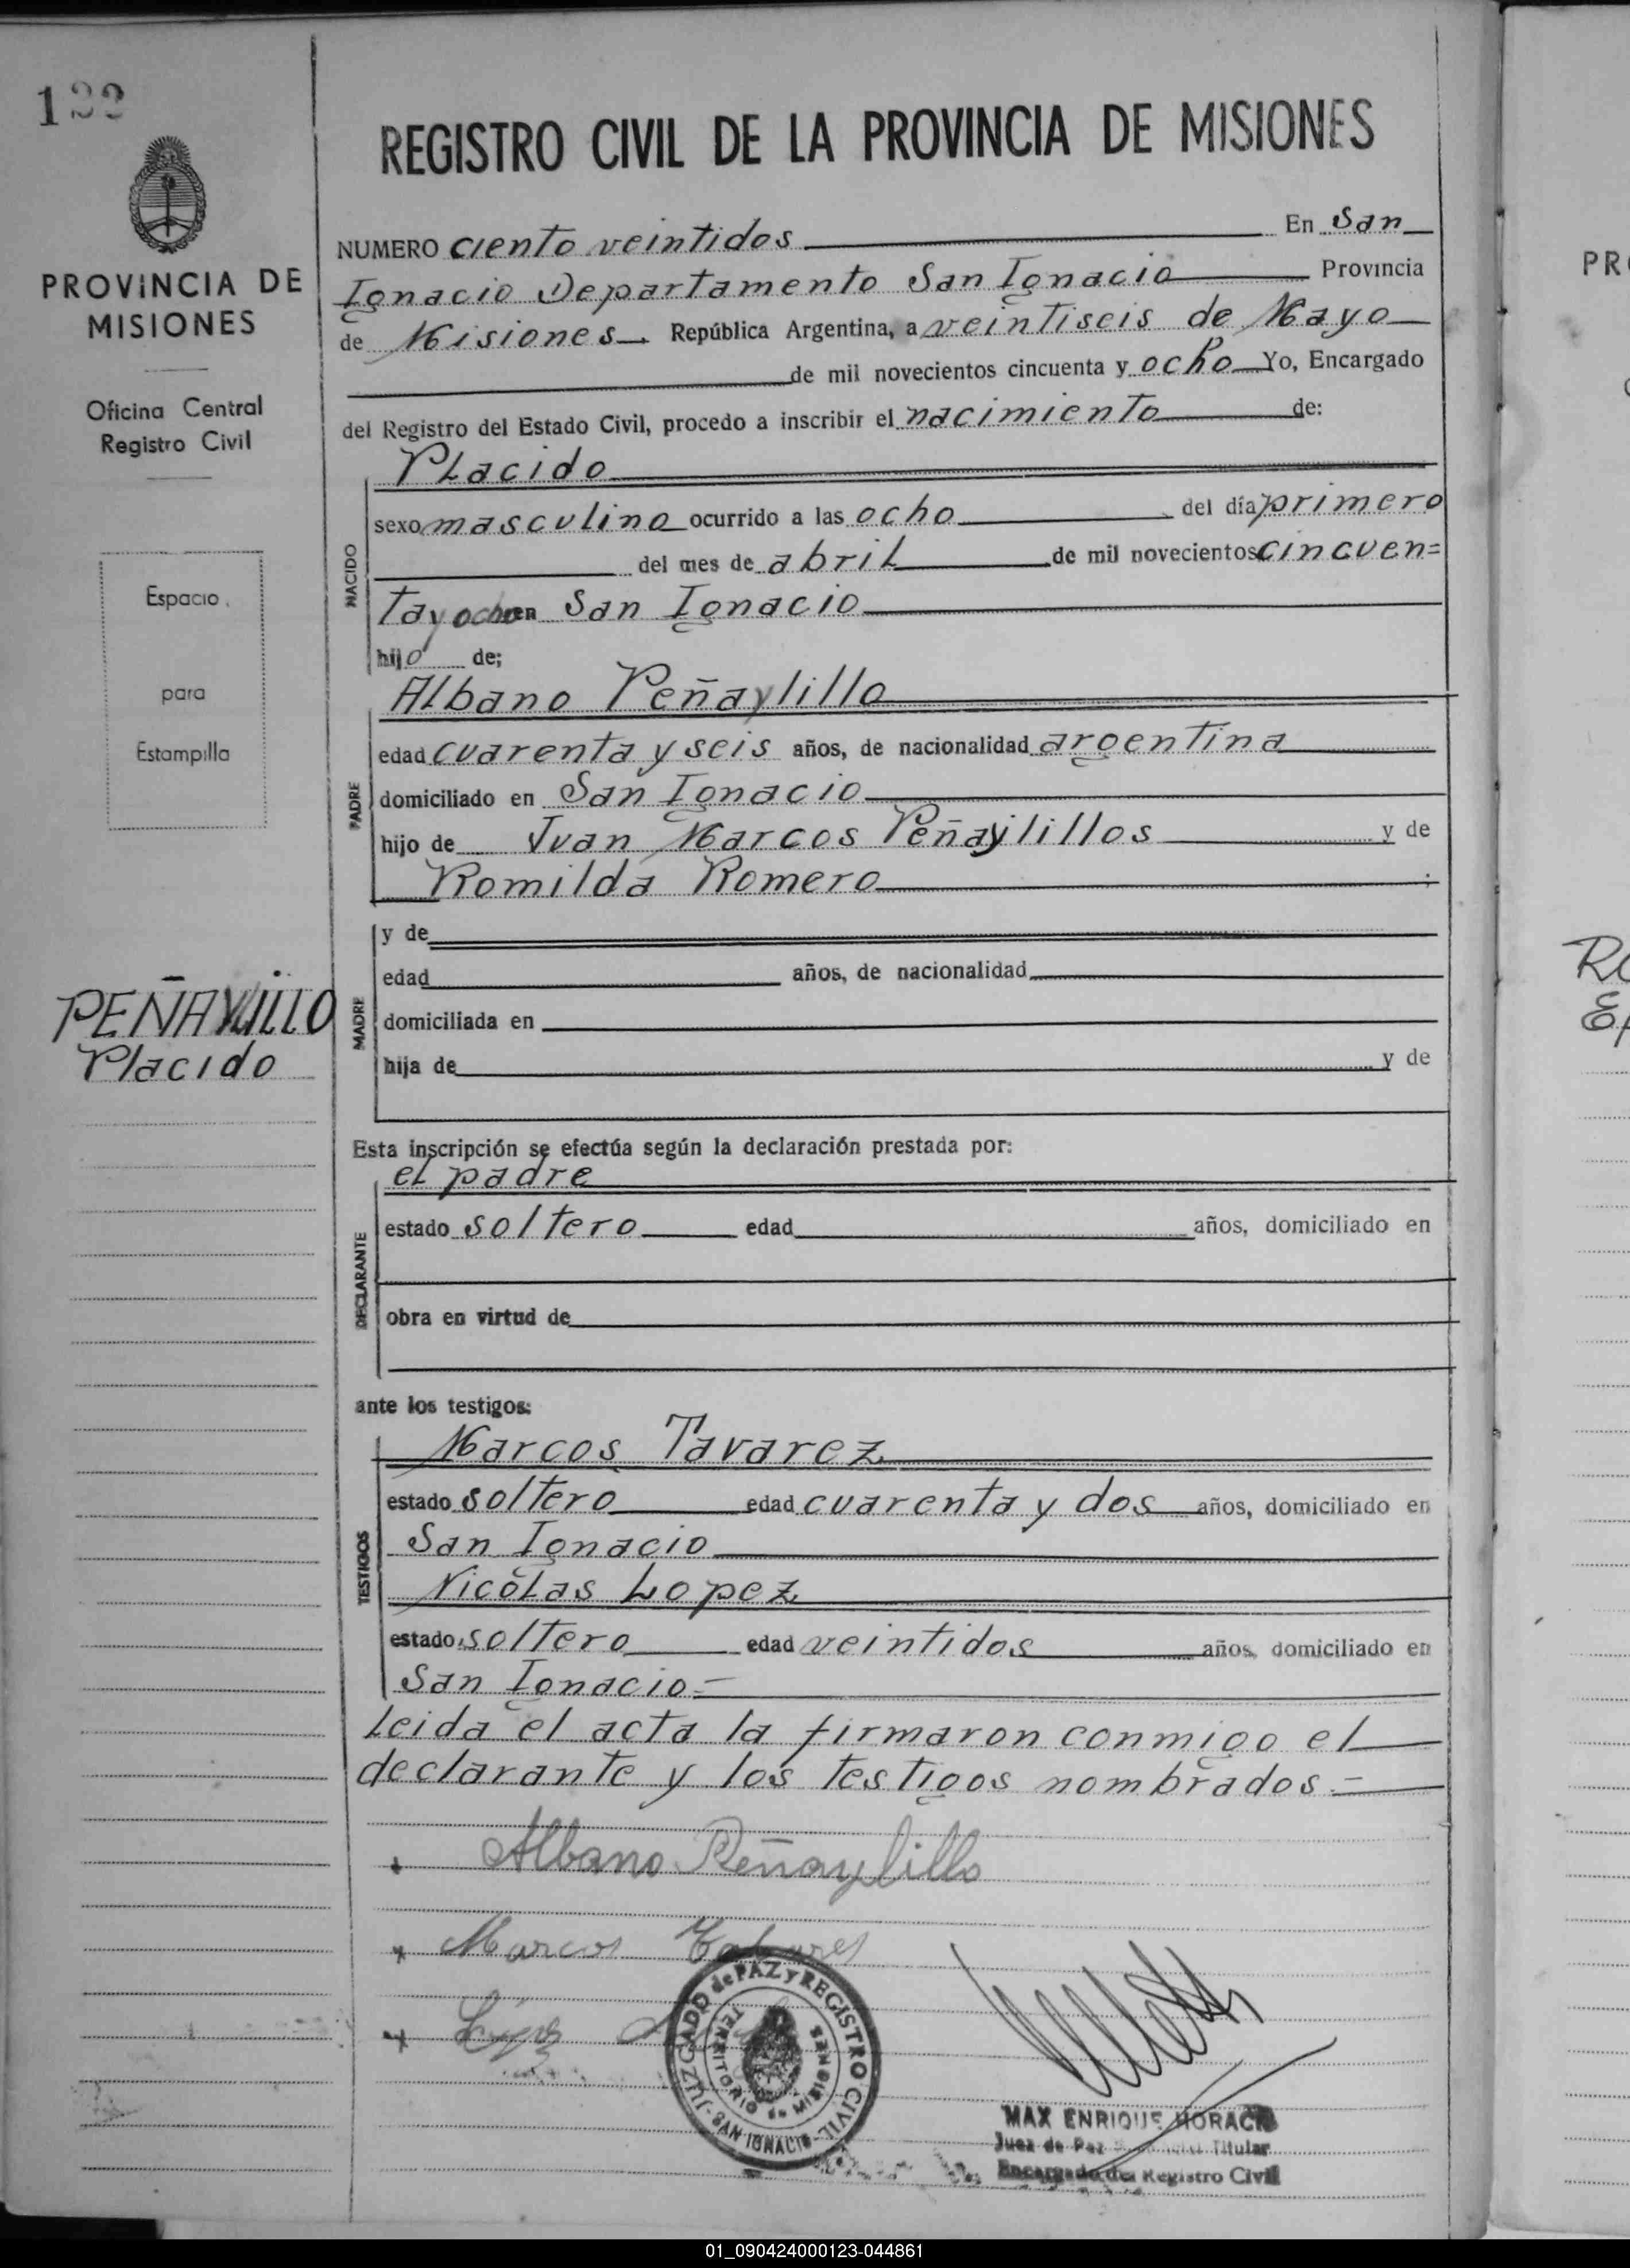 122
PROVINCIA DE
MISIONES
Oficina Central
Registro Civil
Espacio
para
Estampilla
PEÑAYLILLO
Placido
REGISTRO CIVIL DE LA PROVINCIA DE MISIONES
NUMERO ciento veintidos En San
Ignacio Departamento San Ignacio Provincia
de Misiones República Argentina, a veintiseis de Mayo
de mil novecientos cincuenta y ocho Yo, Encargado
del Registro del Estado Civil, procedo a inscribir el nacimiento de:
NACIDO
Placido
sexo masculino ocurrido a las ocho del día primero
del mes de abril de mil novecientos cincuen=
ta y ocho en San Ignacio
hijo de;
PADRE
Albano Peñaylillo
edad cuarenta y seis años, de nacionalidad argentina
domiciliado en San Ignacio
hijo de Juan Marcos Peñaylillos y de
Romilda Romero ;
MADRE
y de
edad años, de nacionalidad
domiciliada en
hija de y de
Esta inscripción se efectúa según la declaración prestada por:
DECLARANTE
el padre
estado soltero edad años, domiciliado en
obra en virtud de
ante los testigos:
TESTIGOS
Marcos Tavarez
estado soltero edad cuarenta y dos años, domiciliado en
San Ignacio
Nicólas Lopez
estado soltero edad veintidos años, domiciliado en
San Ignacio.=
Leida el acta la firmaron conmigo el
declarante y los testigos nombrados.=
Albano Peñaylillo
Marcos Tabares
JUZGADO de PAZ y REGISTRO CIVIL
TERRITORIO de MISIONES
SAN IGNACIO
MAX ENRIQUE HORACIO
Juez de Paz Titular
Encargado del Registro Civil
PR
Ro
01_090424000123-044861